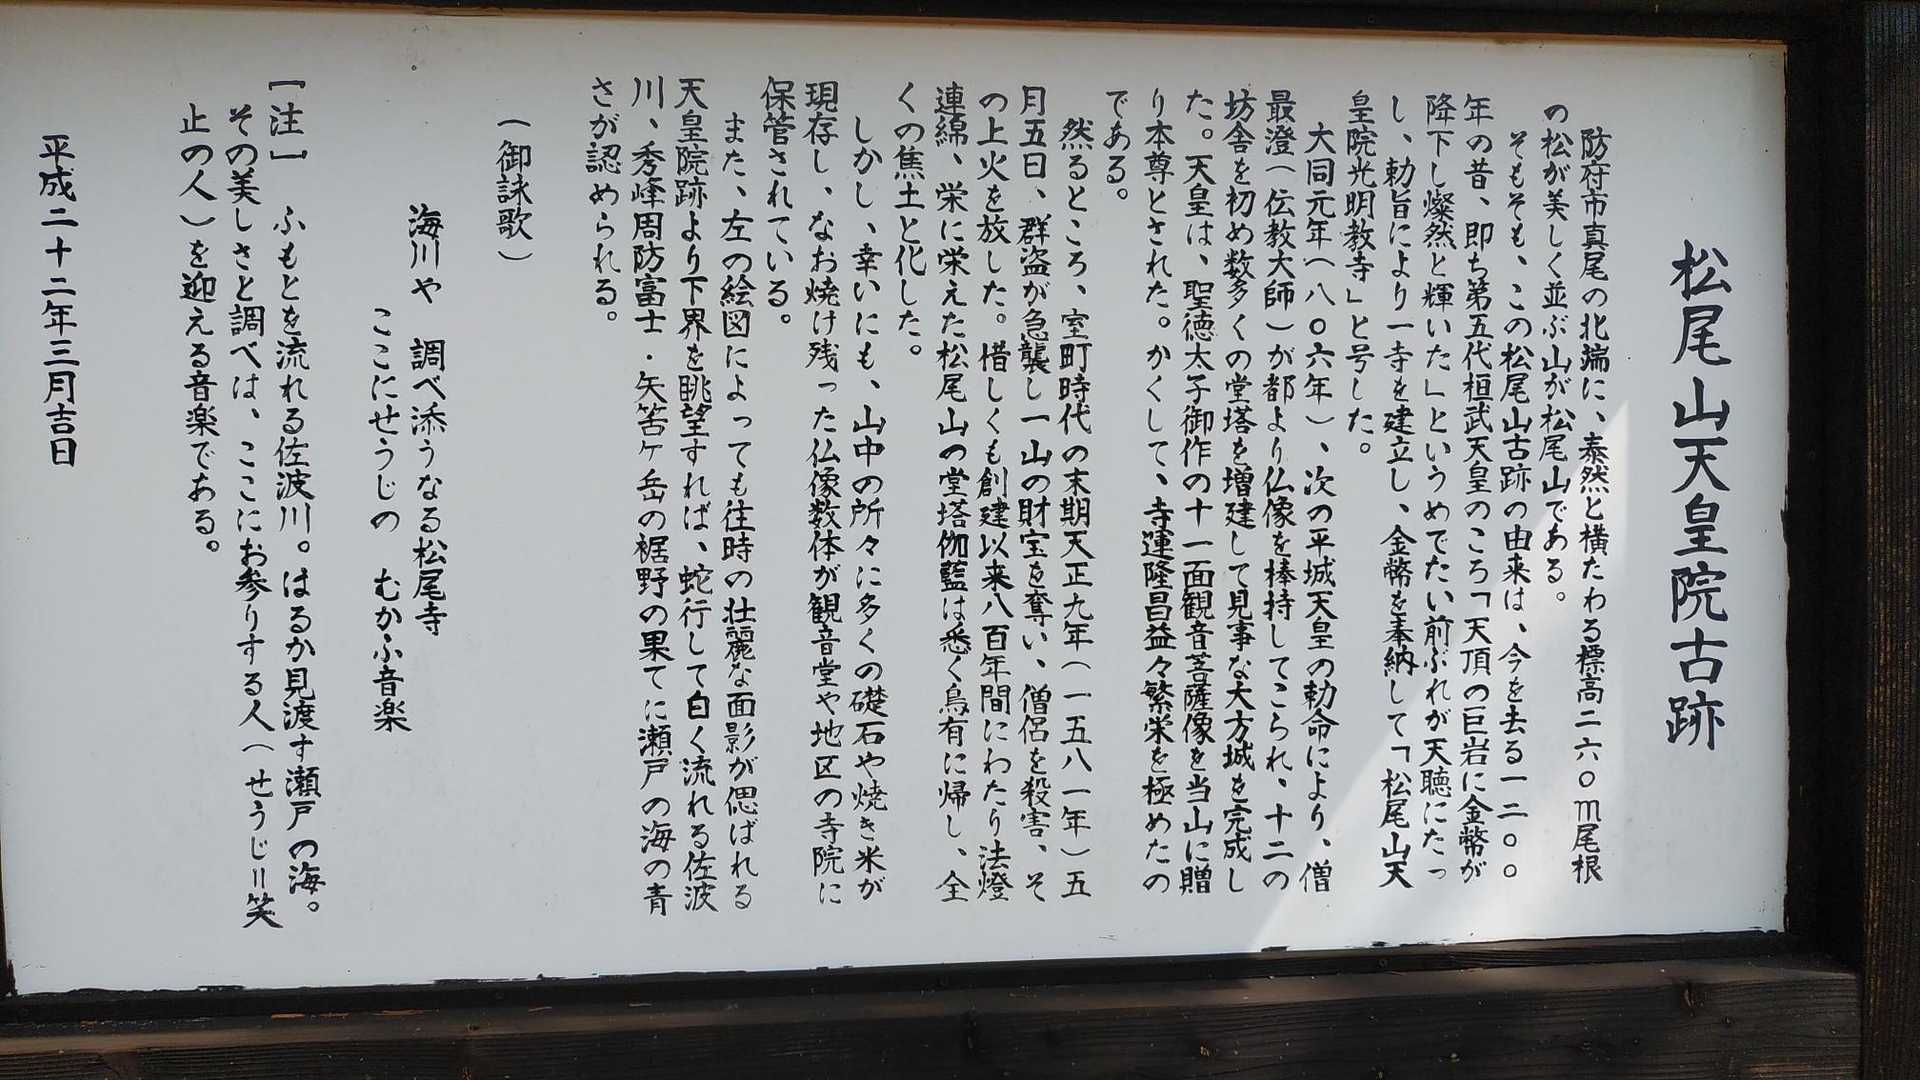 松尾山天皇院古跡
防府市真尾の北端に、泰然と横たわる標高二六〇m尾根
の松が美しく並ぶ山が松尾山である。
そもそも、この松尾山古跡の由来は、今を去る一二〇〇
年の昔、即ち第五代桓武天皇のころ「天頂の巨岩に金幣が
降下し燦然と輝いた」というめでたい前ぶれが天聴にたっ
し、勅旨により一寺を建立し、金幣を奉納して「松尾山天
皇院光明教寺」と号した。
大同元年(八〇六年)、次の平城天皇の勅命により、僧
最澄(伝教大師)が都より仏像を棒持してこられ、十二の
坊舎を初め数多くの堂塔を増建して見事な大方城を完成し
た。天皇は、聖徳太子御作の十一面観音菩薩像を当山に贈
り本尊とされた。かくして、寺運隆昌益々繁栄を極めたの
である。
然るところ、室町時代の末期天正九年(一五八一年)五
月五日、群盗が急襲し一山の財宝を奪い、僧侶を殺害、そ
の上火を放した。惜しくも創建以来八百年間にわたり法燈
連綿、栄に栄えた松尾山の堂塔伽藍は悉く烏有に帰し、全
くの焦土と化した。
しかし、幸いにも、山中の所々に多くの礎石や焼き米が
現存し、なお焼け残った仏像数体が観音堂や地区の寺院に
保管されている。
また、左の絵図によっても往時の壮麗な面影が偲ばれる
天皇院跡より下界を眺望すれば、蛇行して白く流れる佐波
川、秀峰周防富士・矢筈ヶ岳の裾野の果てに瀬戸の海の青
さが認められる。
(御詠歌)
海川や 調べ添うなる松尾寺
ここにせうじの むかふ音楽
[注] ふもとを流れる佐波川。はるか見渡す瀬戸の海。
その美しさと調べは、ここにお参りする人(せうじ=笑
止の人)を迎える音楽である。
平成二十二年三月吉日